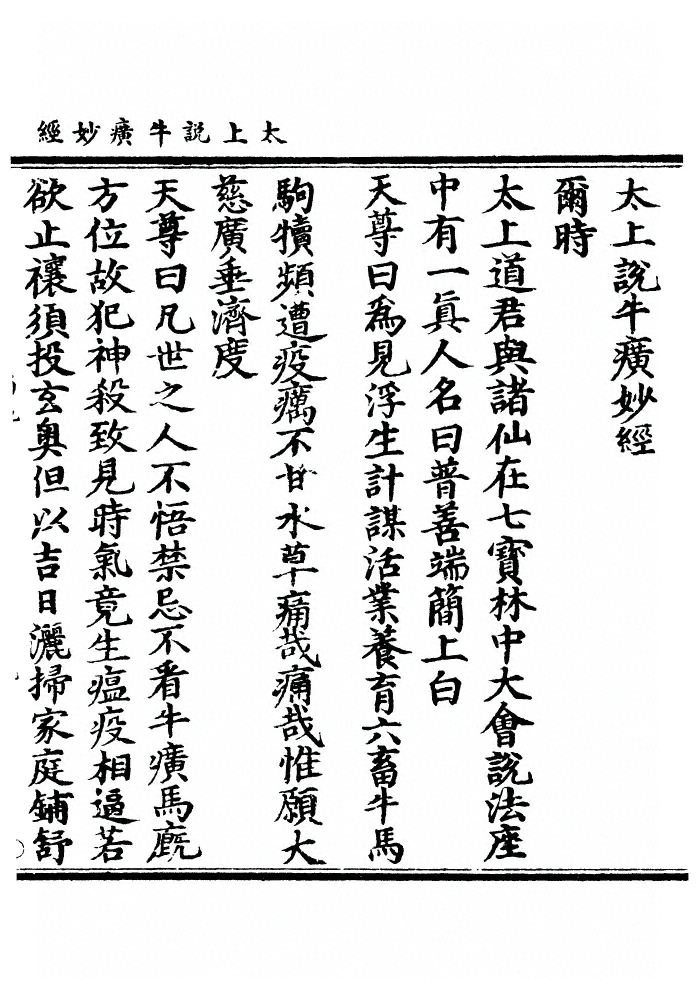 太上説牛癀妙經
太上説牛癀妙經
爾時
太上道君與諸仙在七寳林中大會説法座
中有一眞人名曰普善端簡上白
天尊曰為見浮生計謀活業養育六畜牛馬
駒犢頻遭疫癘不甘水草痛哉痛哉惟願大
慈廣垂濟度
天尊曰凡世之人不悟禁忌不看牛癀馬廐
方位故犯神殺致見時氣竟生瘟疫相逼若
欲止禳須投玄奥但以吉日灑掃家庭鋪舒